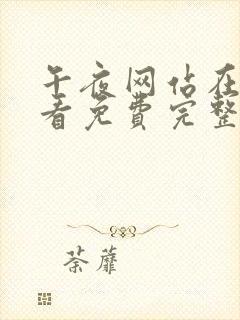 午夜网站在
看免费完整
荼蘼